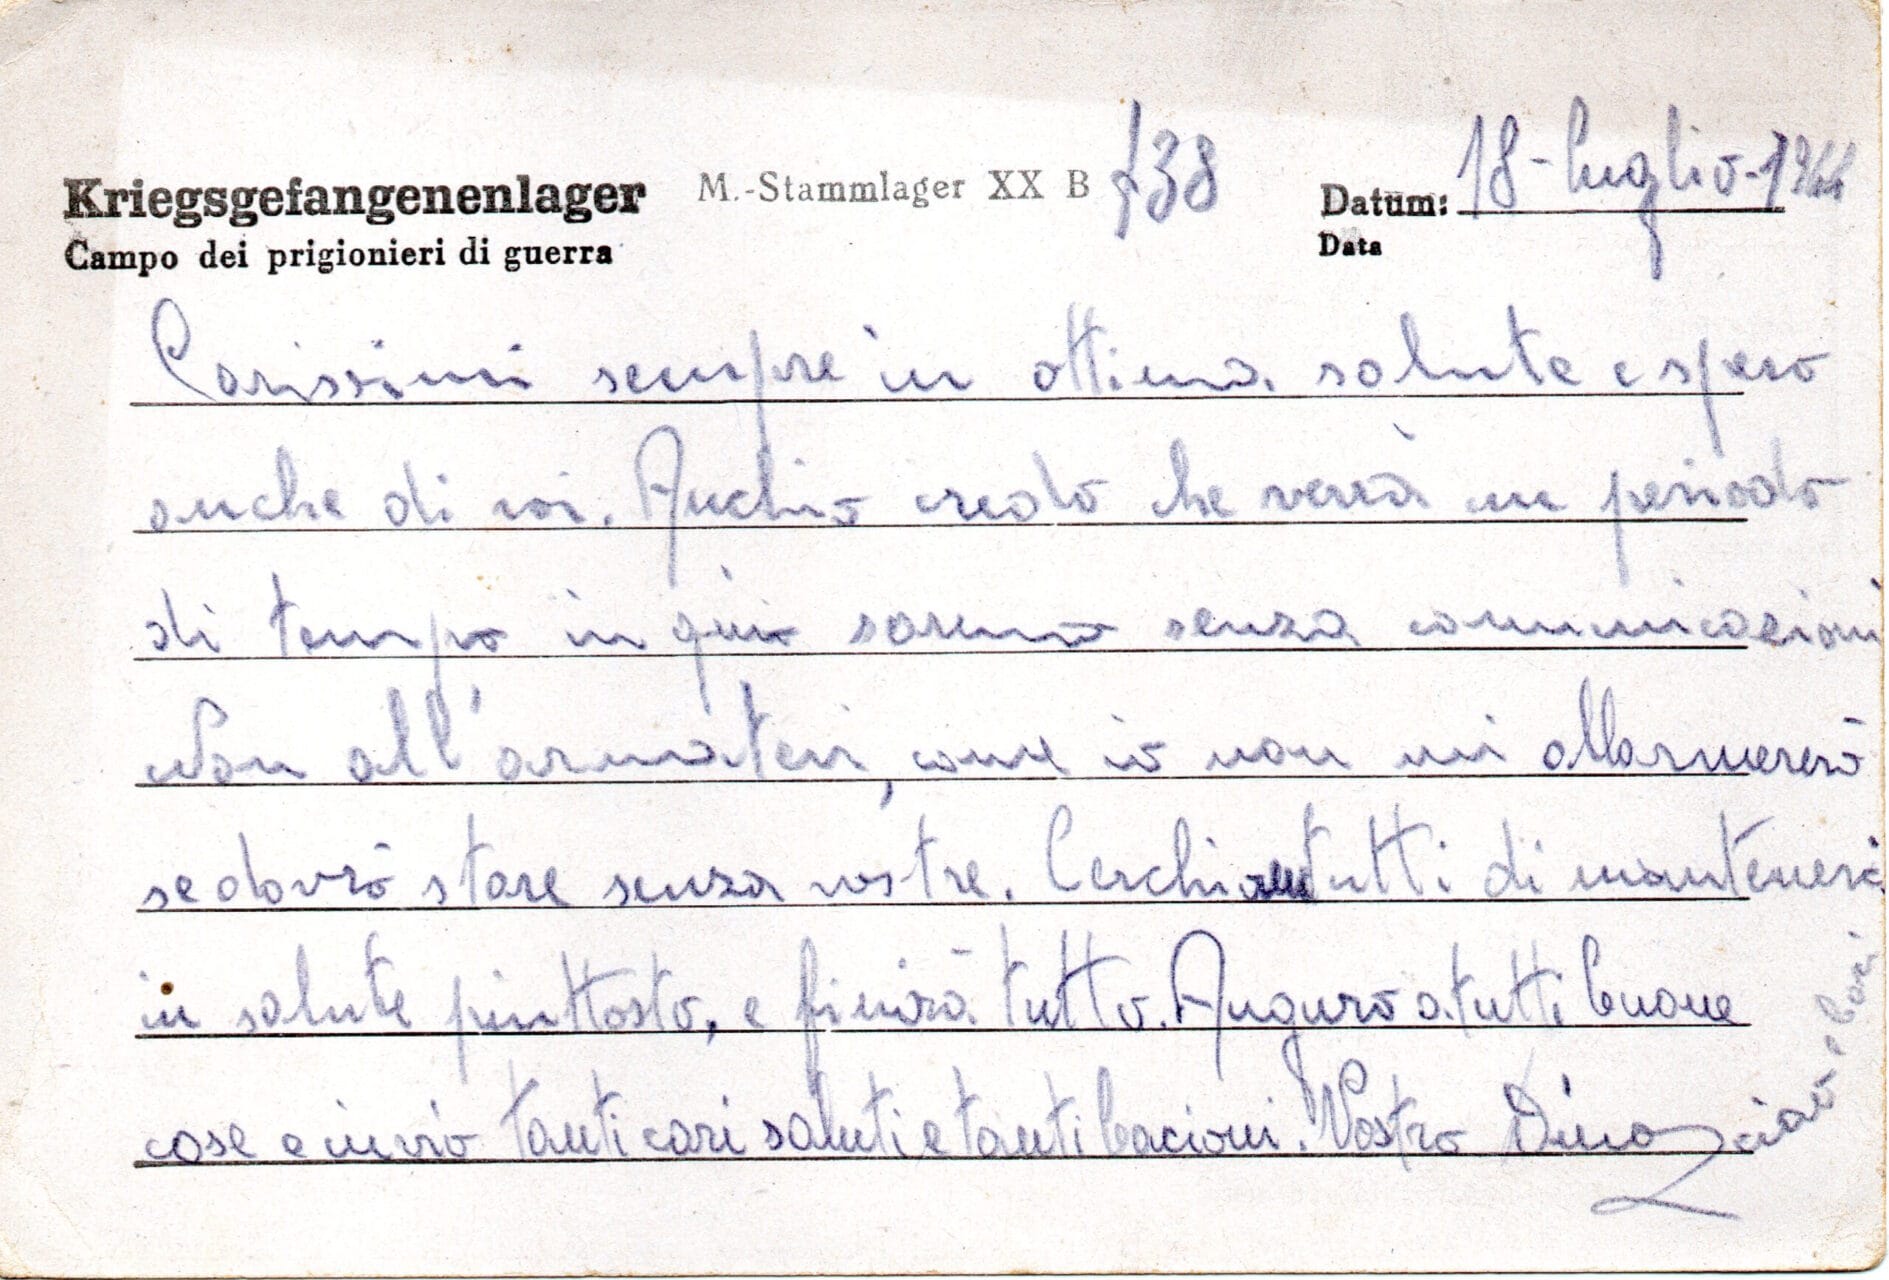 Kriegsgefangenenlager M.-Stammlager XX B 738 Datum: 18-luglio-1944
Campo dei prigionieri di guerra Data
Carissimi sempre in ottima salute e spero
anche di voi. Anch'io credo che verrà un periodo
di tempo in qui saremo senza comunicazioni
Non all'armatevi, come io non mi allarmererò
se dovrò stare senza vostre. Cerchiam tutti di mantenerci
in salute piuttosto, e finirà tutto. Auguro a tutti buone
cose e invio tanti cari saluti e tanti bacioni. Vostro Dino
ciao e baci